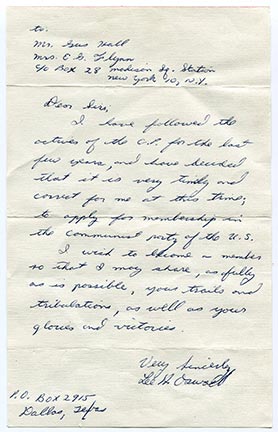 to:
Mr. Gus Hall
Mrs. E G. Flynn
c/o Box 28 madison Sq. Station
new York 10, N.Y.
Dear Sirs,
I have followed the
actives of the C.P. for the last
few years, and have decided
that it is very timely and
correct for me at this time;
to apply for membership in
the communist party of the U.S.
I wish to become a member
so that I may share, as fully
as is possible, your trails and
tribulations, as well as your
glories and victories.
Very Sincerely
Lee H Oswald
P.O. BOX 2915
Dallas, Texas